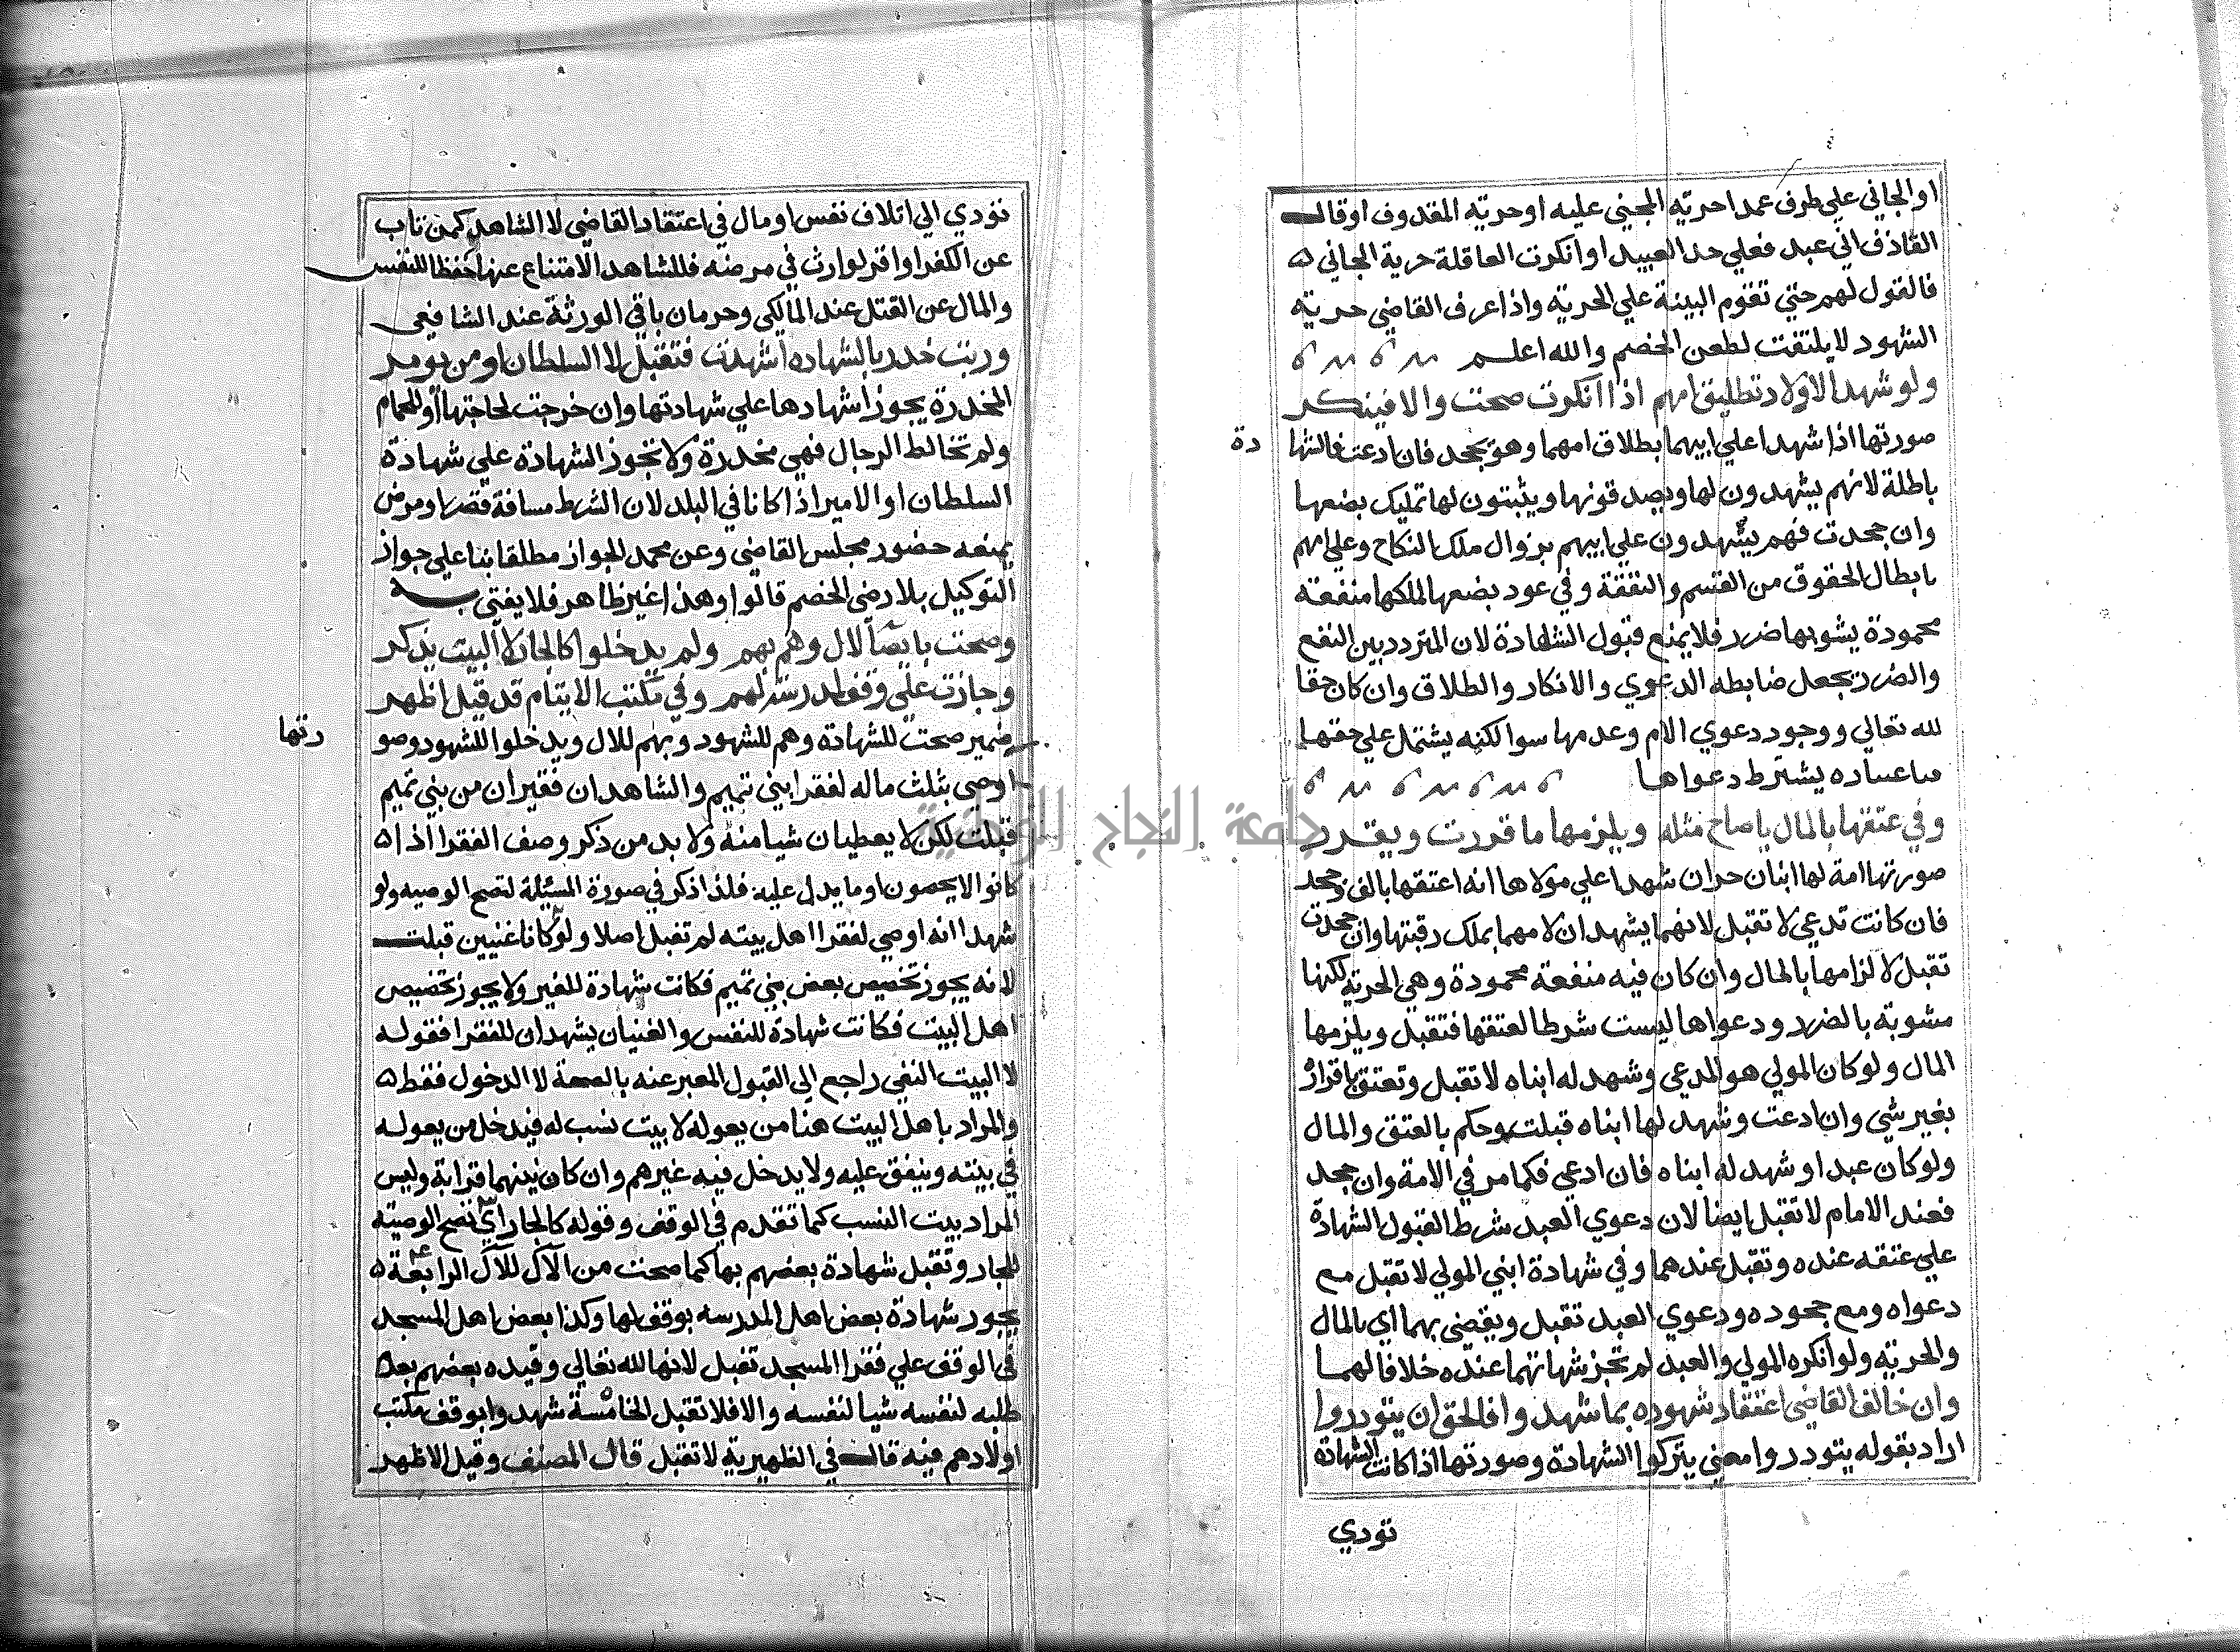 او الجاني علي طرف عمدا حريته المجني عليه او حريته المقذوف او قال
القاذف اني عبد فعلي حد العبيد او انكرت العاقلة حرية الجاني
فالقول لهم حتي تقوم البينة علي الحريته واذا عرف القاضي حريته
الشهود لا يلتفت لطعن الخصم والله اعلم
ولو شهد الاولاد تطليق امهم اذا انكرت صحت والا فينكر
صورتها اذا شهدا علي ابيهما بطلاق امهما وهو يجحد فان ادعت فالشها
دة
باطلة لانهم يشهدون لها ويصدقونها ويثبتون لها تمليك بضعها
وان جحدت فهم يشهدون علي ابيهم بزوال ملك النكاح وعلي امهم
بابطال الحقوق من القسم والنفقة وفي عود بضعها لملكها منفعة
محمودة يشوبها ضرر فلا يمنع قبول الشهادة لان المتردد بين النفع
والضرر يجعل ضابطه الدعوي والانكار والطلاق وان كان حقا
لله تعالي ووجود دعوي الام وعدمها سوا لكنه يشتمل علي حقها
يشترط دعواها
وفي عتقها بالمال يا صاح مثله ويلزمها ما قررت ويقرر
صورتها امة لها ابنان حران شهدا علي مولاها انه اعتقها بالف وجحد
فان كانت تدعي لا تقبل لانهما يشهدان لامهما بملك رقبتها وان جحدت
تقبل لالزامها بالمال وان كان فيه منفعة محمودة وهي الحرية لكنها
مشوبة بالضرر ودعواها ليست شرطا لعتقها فتقبل ويلزمها
المال ولو كان المولي هو المدعي وشهد له ابناه لا تقبل وتعتق باقراره
بغير شي وان ادعت وشهد لها ابناه قبلت وحكم بالعتق والمال
ولو كان عبدا وشهد له ابناه فان ادعي فكما مر في الامة وان جحد
فعند الامام لا تقبل ايضا لان دعوي العبد شرط القبول الشهادة
علي عتقه عنده وتقبل عندهما وفي شهادة ابني المولي لا تقبل مع
دعواه ومع جحوده ودعوي العبد تقبل ويقضي بهما اي بالمال
والحريته ولو انكره المولي والعبد لم تجز شهاتهما عنده خلافا لهما
وان خالف القاضي اعتقاد شهوده بما شهدوا فالحق ان يتورروا
اراد بقوله يتوردروا معني يتركوا الشهادة وصورتها اذا كانت الشهادة
تؤدي
تؤدي الي اتلاف نفس او مال في اعتقاد القاضي لا الشاهد كمن تاب
عن الكفر او اقر لوارث في مرضه فللشاهد الامتناع عنها حفظا للنفس
والمال عن القتل عند المالكي وحرمان باقي الورثة عند الشافعي
وربت خدر بالشهاده اشهدت فتقبل لا السلطان او من يومر
المخدرة يجوز اشهادها علي شهادتها وان خرجت لحاجتها او للحمام
ولم تخالط الرجال فهي مخدرة ولا تجوز الشهادة علي شهادة
السلطان او الامير اذا كانا في البلد لان الشرط مسافة قصر او مرض
يمنعه حضور مجلس القاضي وعن محمد الجواز مطلقا بنا علي جواز
التوكيل بلا رضي الخصم قالوا وهذا غير ظاهر فلا يفتي به
وصحت بايصا لال وهم بهم ولم يدخلوا كالجار لا البيت يذكر
وجازت علي وقف لمدرسة لهم وفي مكتب الايتام قد قيل اظهر
ضمير صحت للشهادة وهم للشهود وبهم للال ويدخلوا للشهود وصو
رتها
اوصي بثلث ماله لفقرا بني تميم والشاهدان فقيران من بني تميم
قبلت لكن لا يعطيان شيا منه ولا بد من ذكر وصف الفقرا اذا
كانوا لا يحصون او ما يدل عليه فلذا ذكر في صورة المسئلة لتصح الوصيه ولو
شهدا انه اوصي لفقرا اهل بيته لم تقبل اصلا ولو كانا غنيين قبلت
لانه يجوز تخصيص بعض بني تميم فكانت شهادة للغير ولا يجوز تخصيص
اهل البيت فكانت شهادة للنفس والغنيان يشهدان للفقرا فقوله
لا البيت النفي راجع الي القبول المعبر عنه بالصحة لا الدخول فقط
والمراد باهل البيت هنا من يعوله لا بيت نسب له فيدخل من يعوله
في بيته وينفق عليه ولا يدخل فيه غيرهم وان كان بينهما قرابة وليس
المراد بيت النسب كما تقدم في الوقف وقوله كالجار اي تصح الوصيته
للجار وتقبل شهادة بعضهم بها كما صحت من الآل للآل الرابعة
يجوز شهادة بعض اهل المدرسه بوقف لها وكذا بعض اهل المسجد
في الوقف علي فقرا المسجد تقبل لانها لله تعالي وقيده بعضهم بعدم
طلبه لنفسه شيا لنفسه والا فلا تقبل الخامسة شهدوا بوقف مكتب
اولادهم فيه قال في الظهيرية لا تقبل قال المصنف وقيل الاظهر